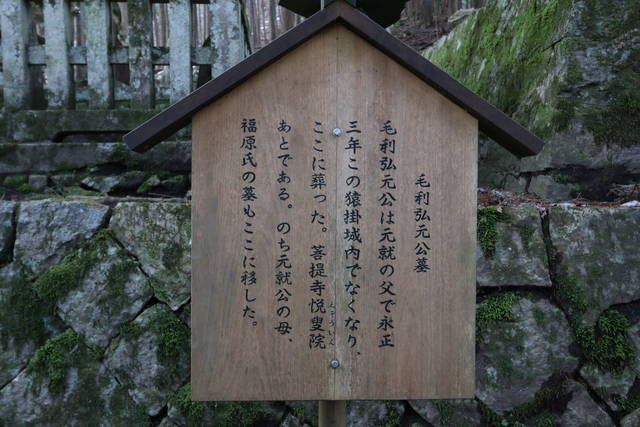 毛利弘元公墓
毛利弘元公は元就の父で永正
三年この猿掛城内でなくなり、
ここに葬った。菩提寺悦叟院
えつそういん
あとである。のち元就公の母、
福原氏の墓もここに移した。